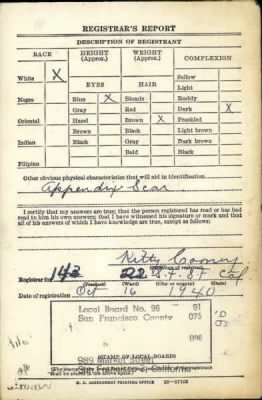 REGISTRAR'S REPORT
DESCRIPTION OF REGISTRANT
RACE HEIGHT (Approx.) WEIGHT (Approx.) COMPLEXION
White X Sallow
EYES HAIR Light
Negro Blue X Blonde Ruddy
Gray Red Dark X
Oriental Hazel Brown X Freckled
Brown Black Light brown
Indian Black Gray Dark brown
Bald Black
Filipino
Other obvious physical characteristics that will aid in identification
Appendix Scar
I certify that my answers are true; that the person registered has read or has had
read to him his own answers; that I have witnessed his signature or mark and that
all of his answers of which I have knowledge are true, except as follows:
Kitty Cooney
(Signature of registrar)
Registrar for 143 22 S.F. S.F. Cal
(Precinct) (Ward)
Date of registration Oct 16 1940
Local Board No. 96 81
San Francisco County 075
096
989 Market Street
STAMP OF LOCAL BOARD
San Francisco 2, California
U. S. GOVERNMENT PRINTING OFFICE 16-17105